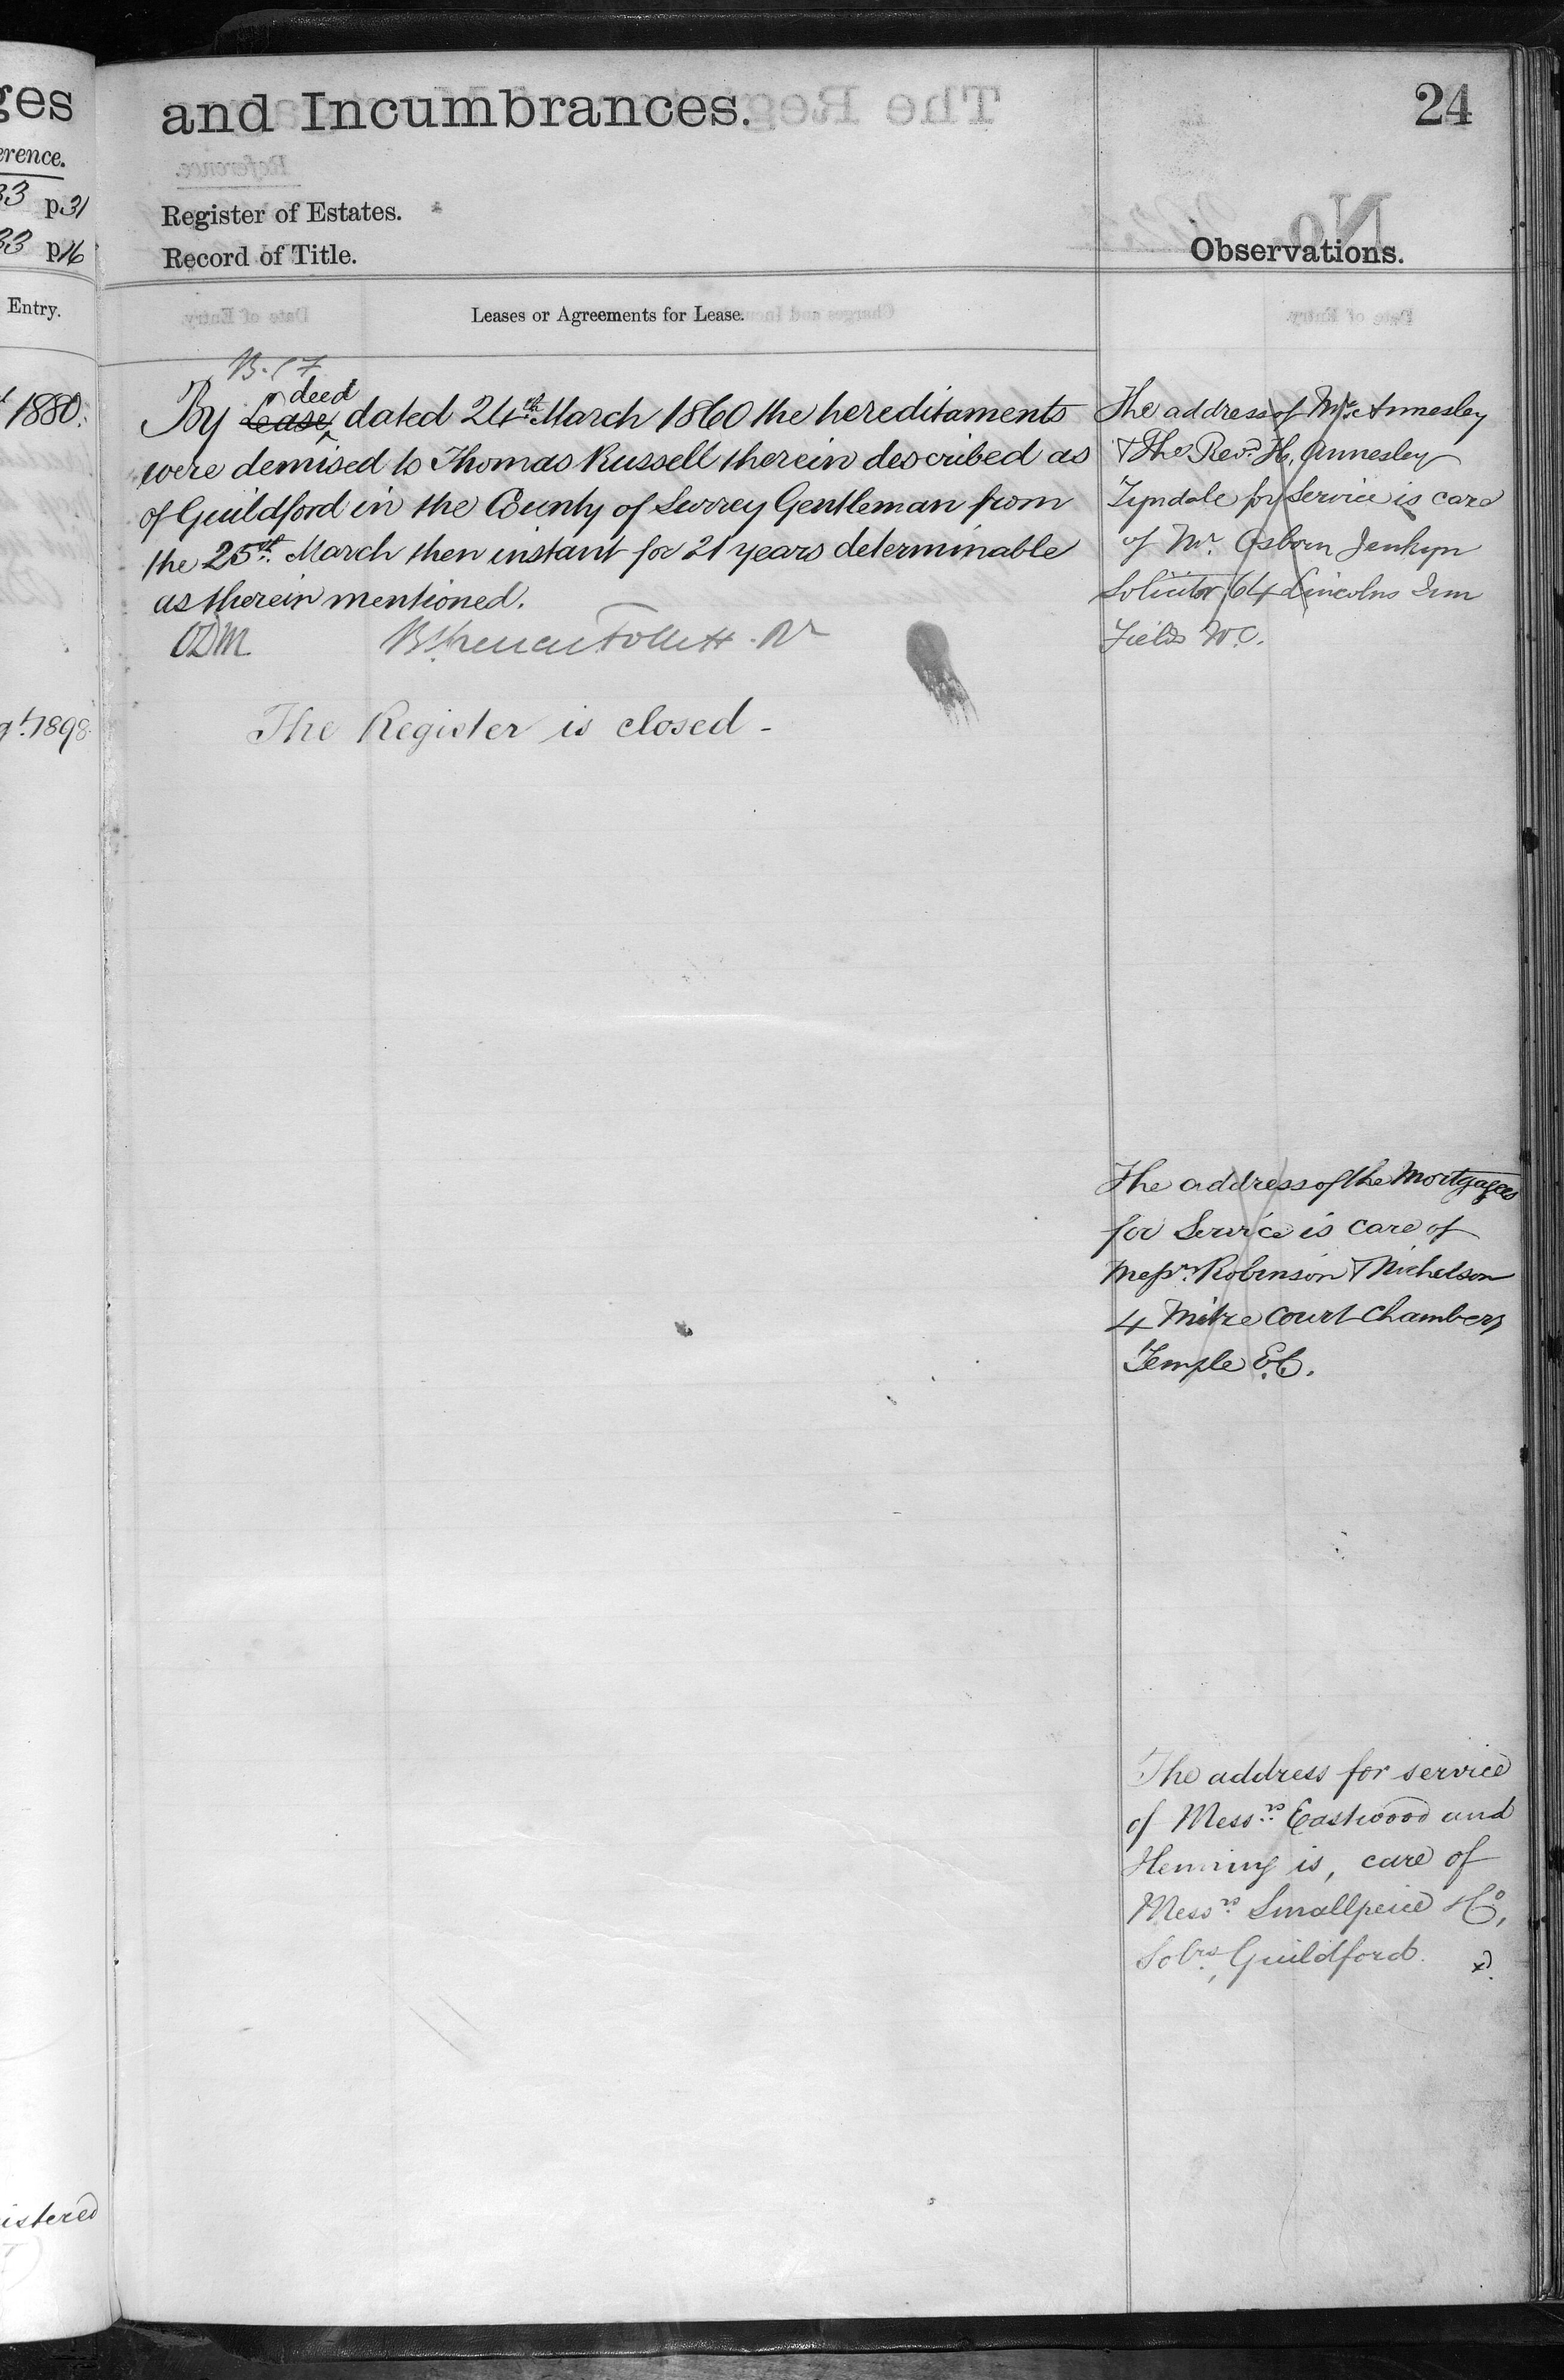 ges
erence.
33 p31
33 p16
Entry.
1880.
1898
istered
and Incumbrances.
24
Register of Estates.
Record of Title.
Observations.
Leases or Agreements for Lease.
deed
By Lease, dated 24th March 1860 the hereditaments
were demised to Thomas Russell therein described as
of Guildford in the County of Surrey Gentleman from
the 25th March then instant for 21 years determinable
as therein mentioned.
ODM
The Register is closed -
The address of Mr. Annesley
& The Revd. H. Annesley
Tyndale for Service is care
of Mr. Osborn Jenkyn
Solicitor 64 Lincolns Inn
Fields W.C.
The address of the Mortgagees
for Service is care of
Messrs. Robinson & Nicholson
4 Mitre Court Chambers
Temple E.C.
The address for service
of Messrs. Eastwood and
Henning is, care of
Messrs. Smallpeice & Co,
Solrs, Guildford.